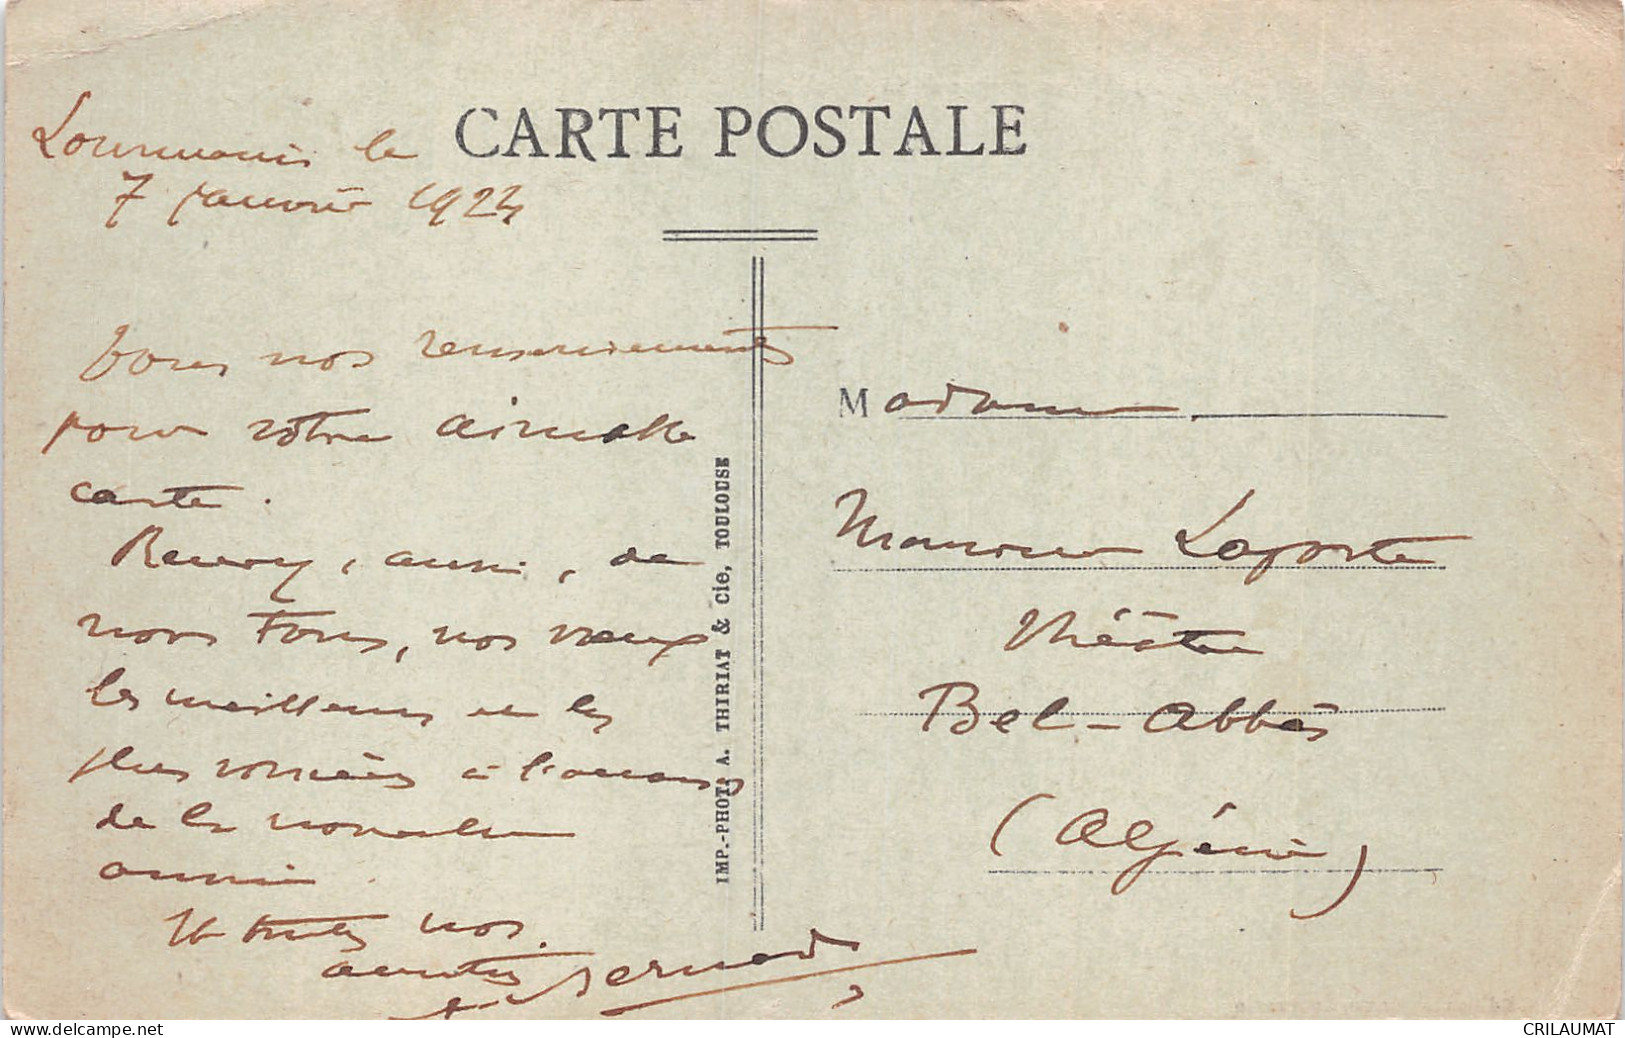 CARTE POSTALE
Lourmarin le
7 janvier 1924
Tous nos remerciements
pour votre aimable
carte.
Recevez, aussi, de
nous tous, nos vœux
les meilleurs et les
plus sincères à l'occasion
de la nouvelle
année.
Et toutes nos
amitiés Bernard
Madame
Monsieur Laporte
Théâtre
Bel-Abbès
(Algérie)
IMP.-PHOT. A. THIRIAT & Cie, TOULOUSE
delcampe.net
CRILAUMAT